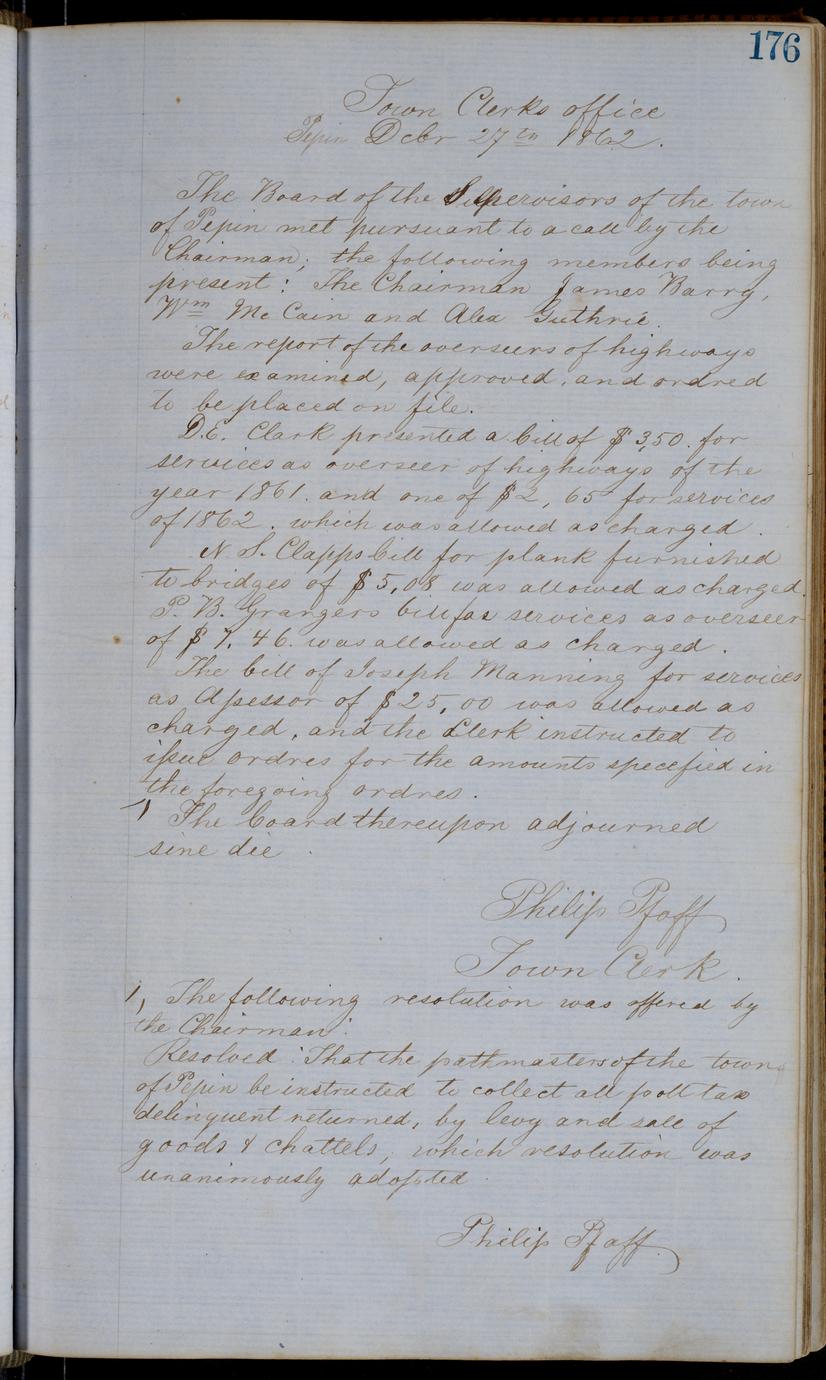 176
Town Clerks office
Pepin Dcbr 27th 1862.
The Board of the Supervisors of the town
of Pepin met pursuant to a call by the
Chairman; the following members being
present: The Chairman James Barry,
Wm McCain and Alex Guthrie.
The report of the overseers of highways
were examined, approved, and ordred
to be placed on file.
D.E. Clark presented a bill of $3,50. for
services as overseer of highways of the
year 1861. and one of $2,65 for services
of 1862. which was allowed as charged.
N. S. Clapps bill for plank furnished
to bridges of $5,08 was allowed as charged.
P. B. Grangers bill for services as overseer
of $7.46. was allowed as charged.
The bill of Joseph Manning for services
as Assessor of $25,00 was allowed as
charged, and the Clerk instructed to
issue ordres for the amounts specefied in
the foregoing ordres.
1) The board thereupon adjourned
sine die.
Philip Pfaff
Town Clerk.
1) The following resolution was offered by
the Chairman:
Resolved: That the pathmasters of the town
of Pepin be instructed to collect all poll tax
delinquent returned, by levy and sale of
goods & chattels, which resolution was
unanimously adopted
Philip Pfaff